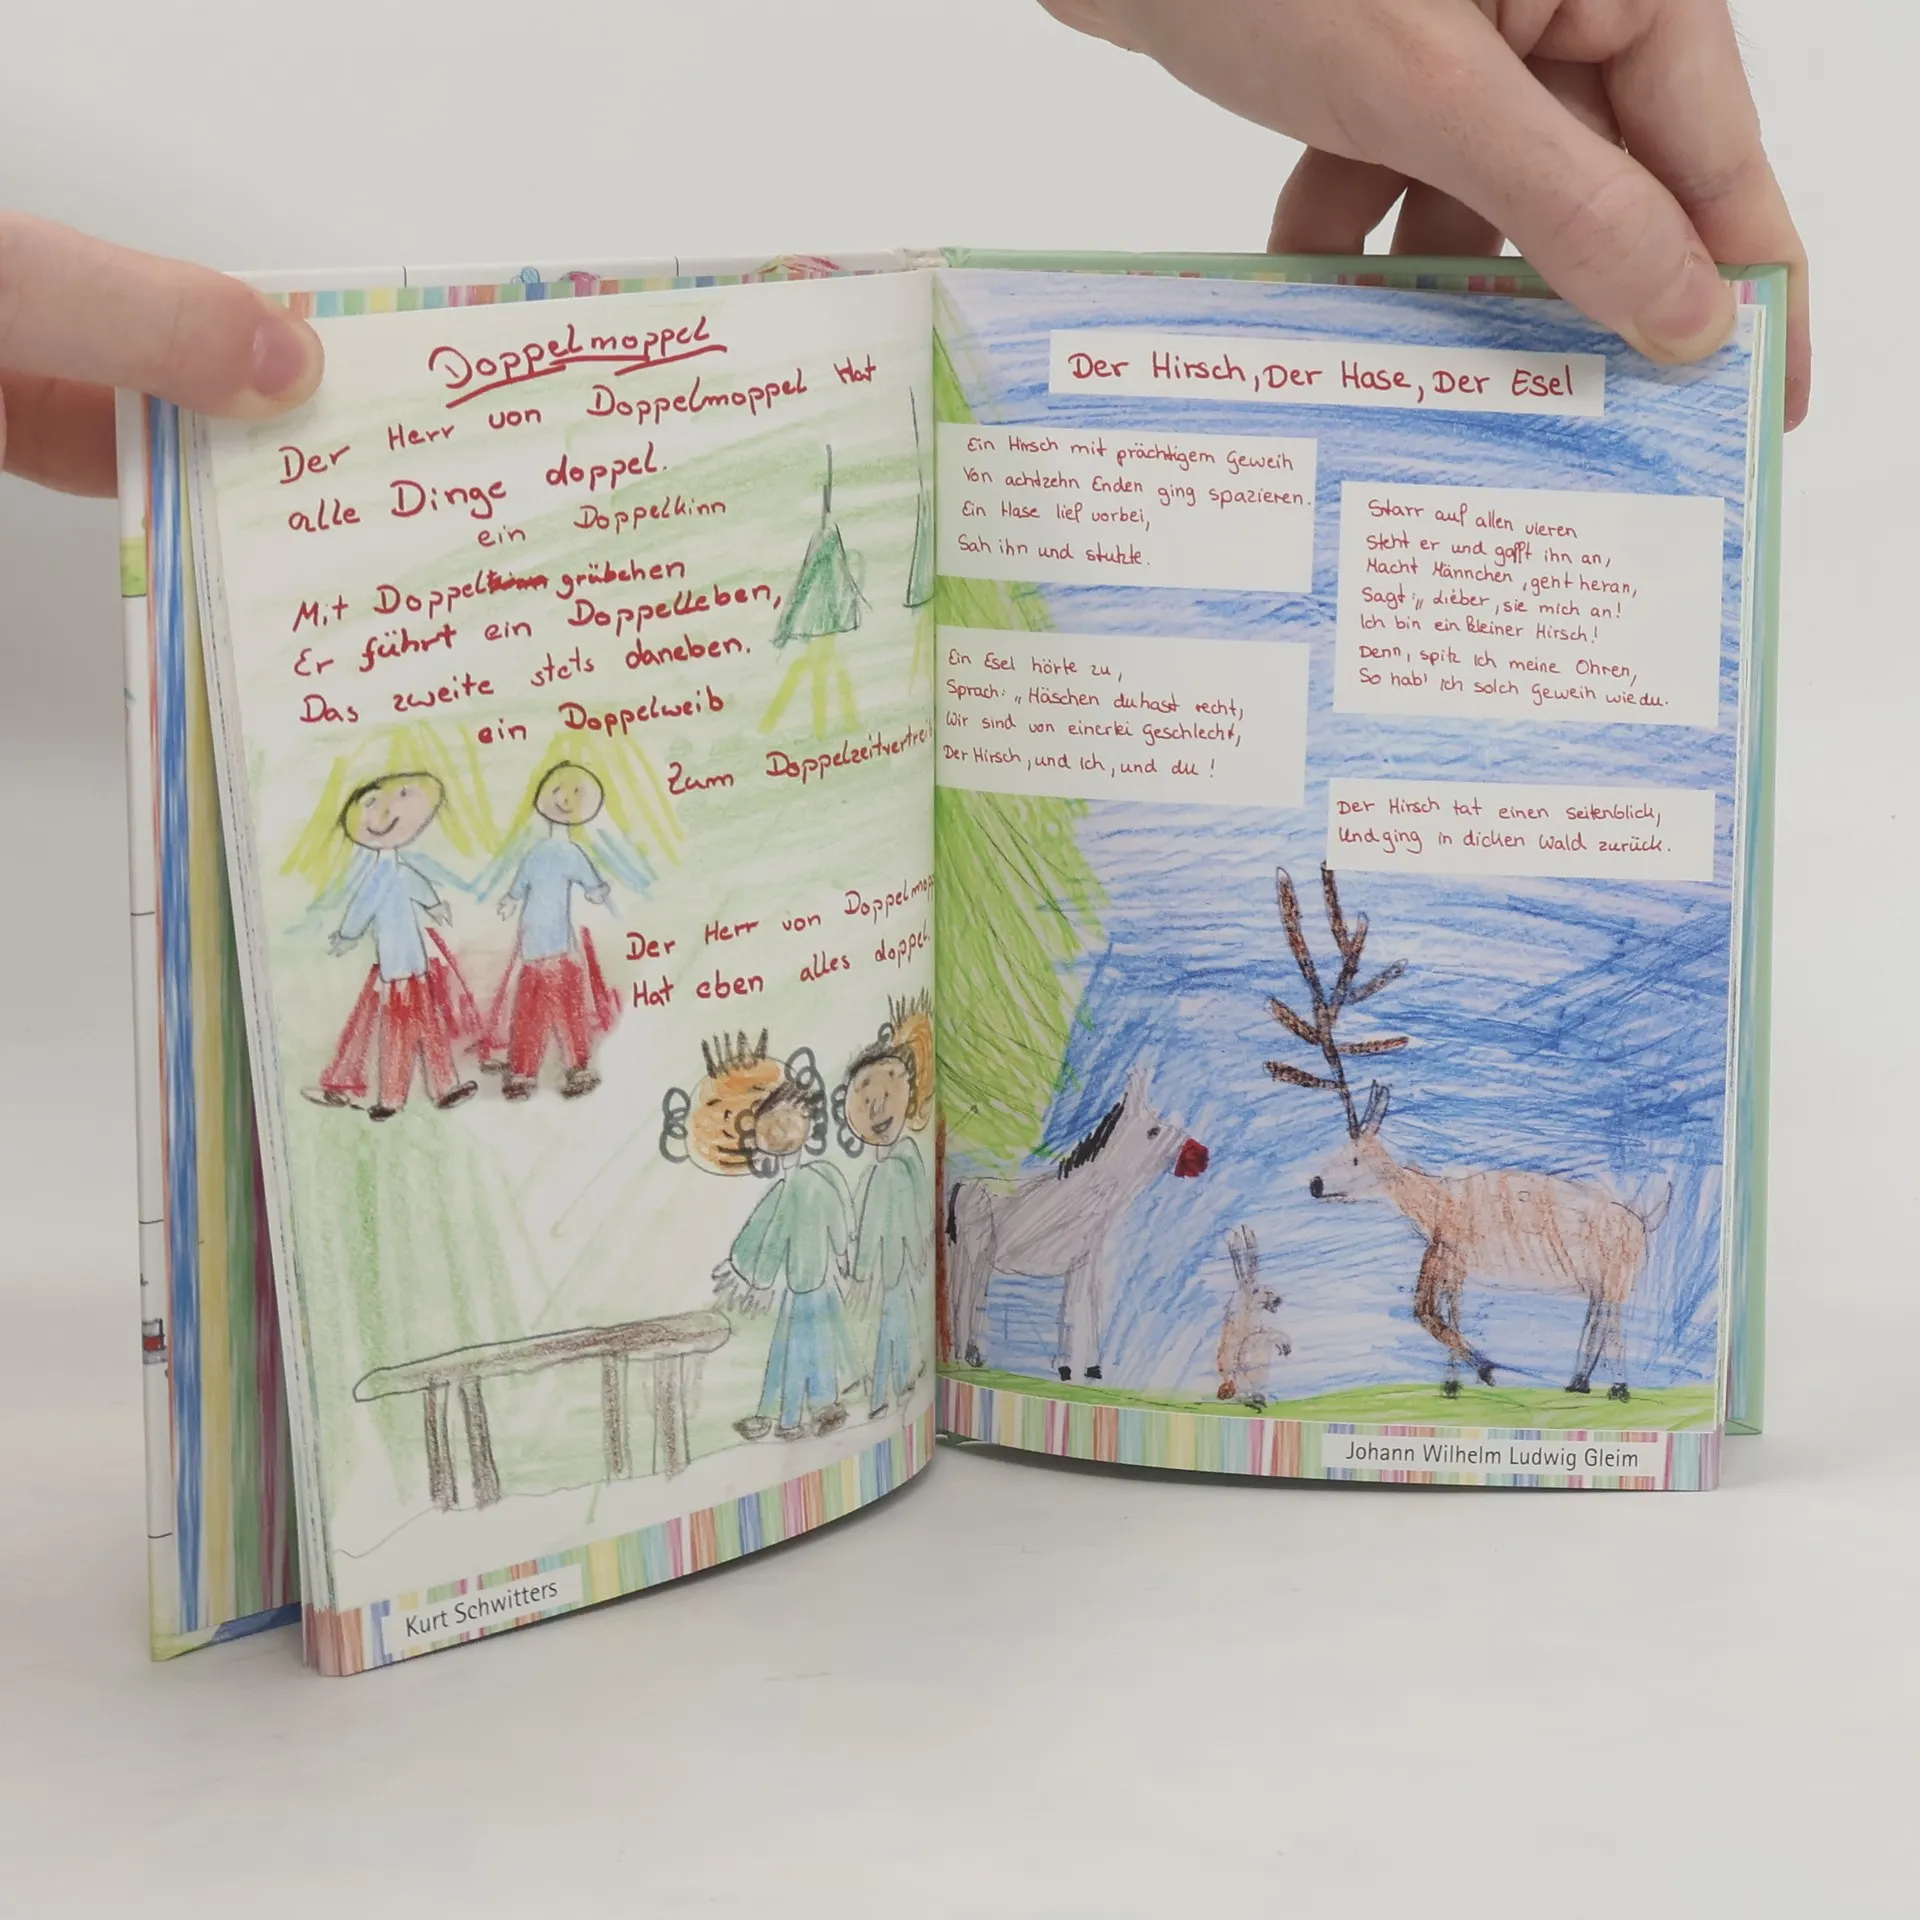 Doppelmoppel
Der Herr von Doppelmoppel Hat
alle Dinge doppel.
ein Doppelkinn
Mit Doppelkinn grübchen
Er führt ein Doppelleben,
Das zweite stets daneben.
ein Doppelweib
Zum
Der Herr von
Hat eben alles doppel.
Kurt Schwitters
Der Hirsch, Der Hase, Der Esel
Ein Hirsch mit prächtigem Geweih
Von achtzehn Enden ging spazieren.
Ein Hase lief vorbei,
Sah ihn und stutzte.
Starr auf allen vieren
Steht er und gafft ihn an,
Macht Männchen, geht heran,
Sagt: „Lieber, sie mich an!
Ich bin ein kleiner Hirsch!
Denn, spitz ich meine Ohren,
So hab' ich solch Geweih wie du.
Ein Esel hörte zu,
Sprach: „Häschen du hast recht,
Wir sind von einerlei Geschlecht,
Der Hirsch, und ich, und du!
Der Hirsch tat einen seitenblick,
Und ging in dicken Wald zurück.
Johann Wilhelm Ludwig Gleim